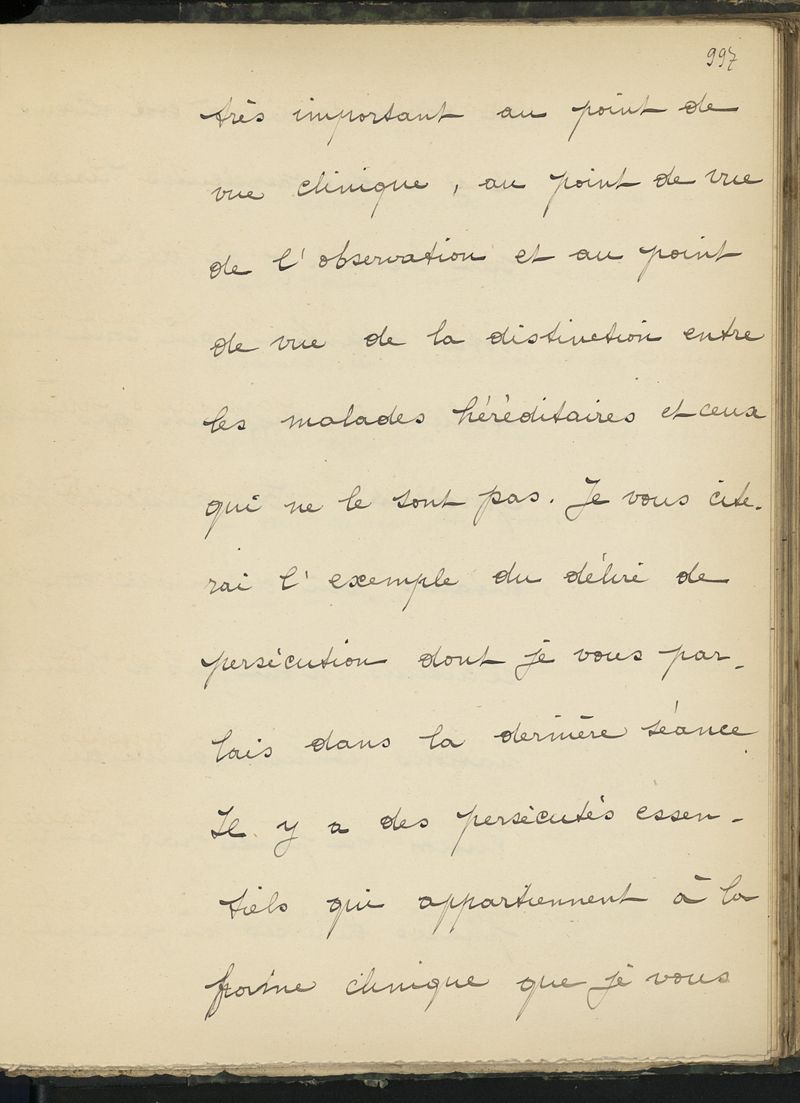 997
très important au point de
vue clinique, au point de vue
de l'observation et au point
de vue de la distinction entre
les malades héréditaires et ceux
qui ne le sont pas. Je vous cite-
rai l'exemple du délire de
persécution dont je vous par-
lais dans la dernière séance.
Il y a des persécutés essen-
tiels qui appartiennent à la
forme clinique que je vous